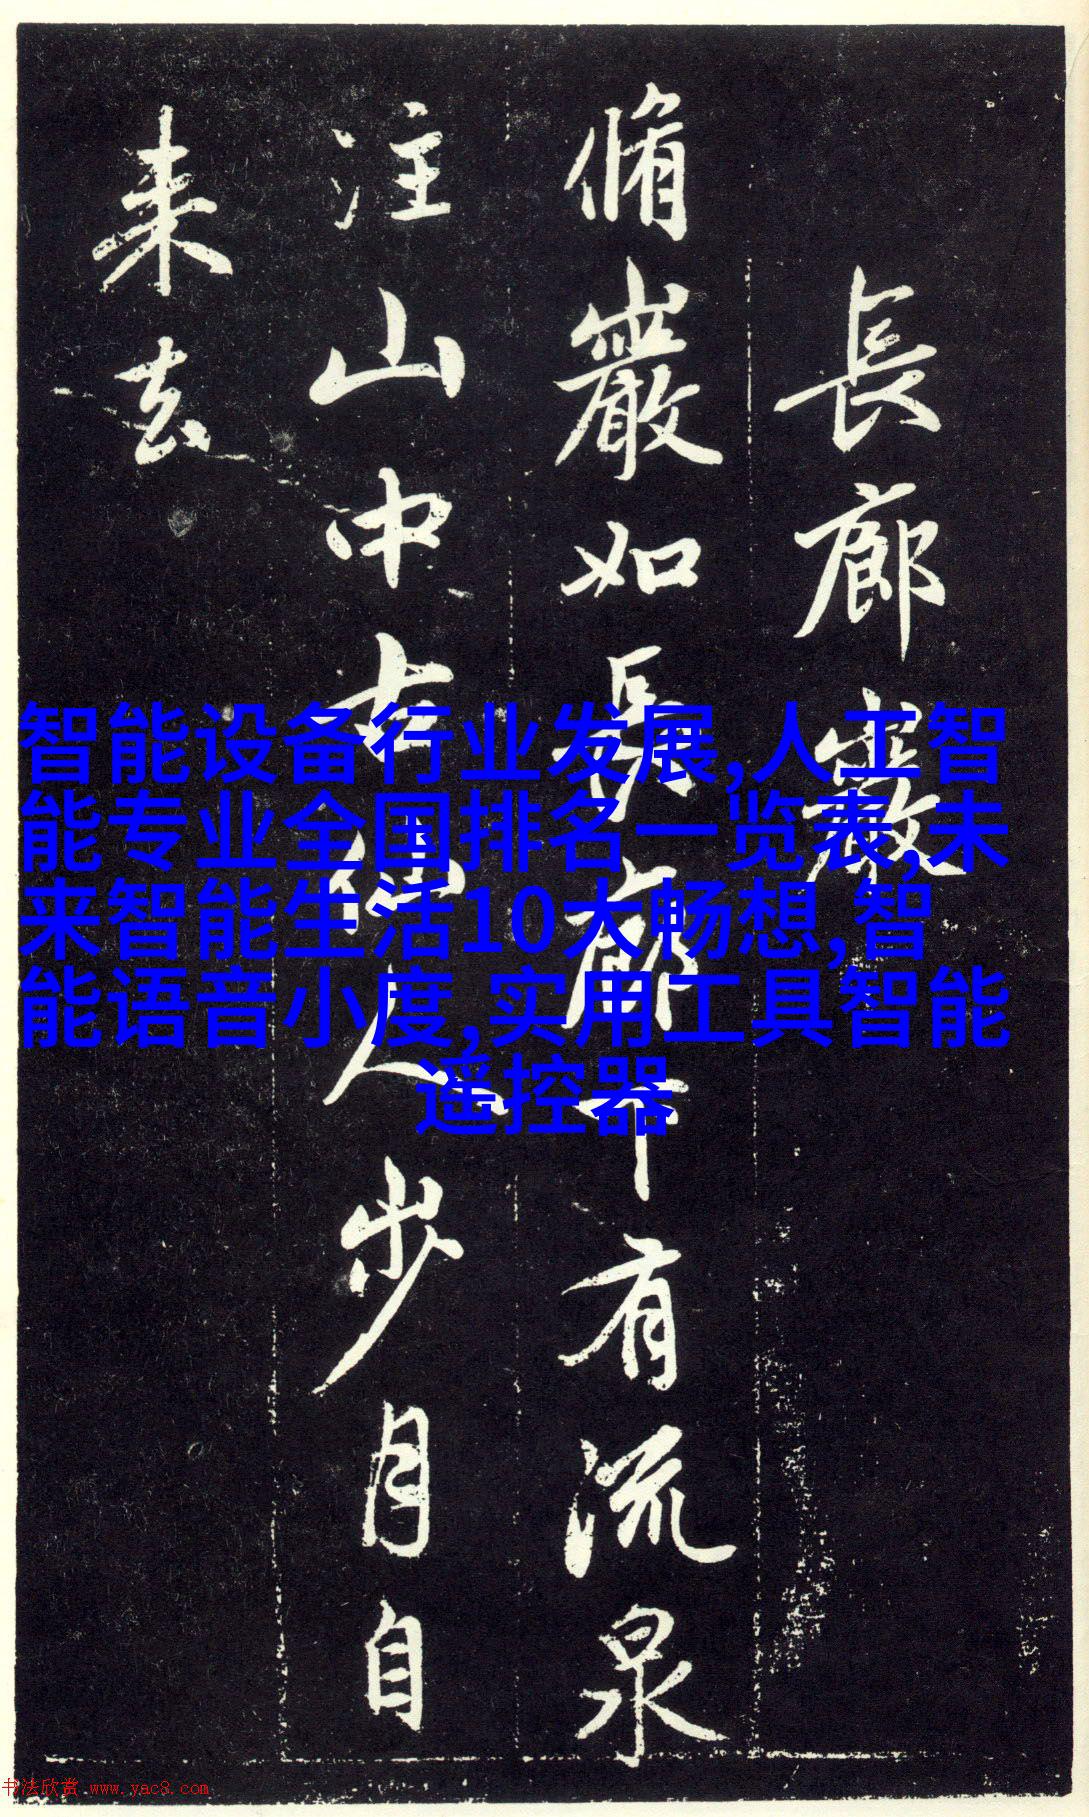 長廊巖
脩巖如長廊下有流泉
注山中古仙人步月自
来去
智能设备行业发展,人工智
能专业全国排名一览表,未
来智能生活10大畅想,智
能语音小度,实用工具智能
遥控器
书法欣赏 www.yac8.com